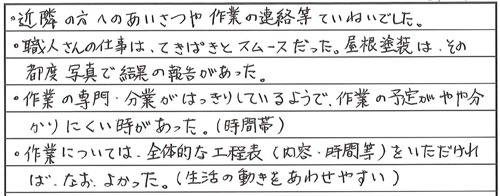 ・近隣の方へのあいさつや作業の連絡等ていねいでした。
・職人さんの仕事は、てきぱきとスムースだった。屋根塗装は、その
都度写真で結果の報告があった。
・作業の専門・分業がはっきりしているようで、作業の予定がやや分
かりにくい時があった。(時間帯)
・作業については、全体的な工程表(内容・時間等)をいただけれ
ば、なお、よかった。(生活の動きをあわせやすい)